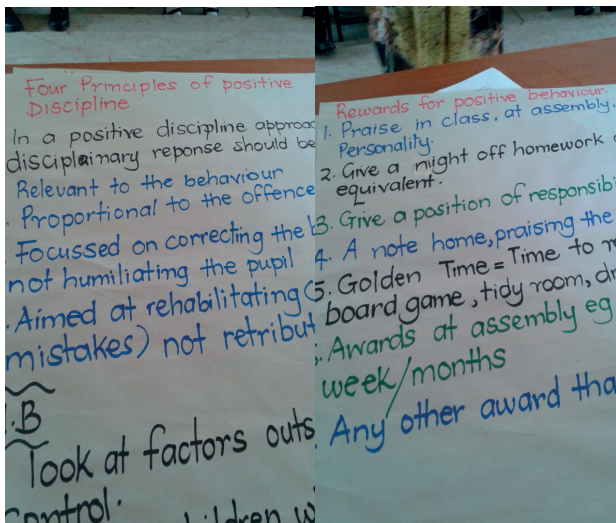 Four Principles of positive
DISCIPLINE
In a positive discipline approac
disciplainary reponse should be
Relevant to the behaviour
Proportional to the offence
Focussed on correcting the
not humiliating the pupil
Aimed at rehabilitating
mistakes) not retribut
.B
look at factors outs
control.
children w
Rewards for positive behaviour.
1. Praise in class, at assembly,
Personality.
2. Give a night off homework
equivalent.
3. Give a position of responsibi
4. A note home, praising the
5. Golden Time = Time to
board game, tidy room, dr
Awards at assembly eg
week/months
Any other award tha